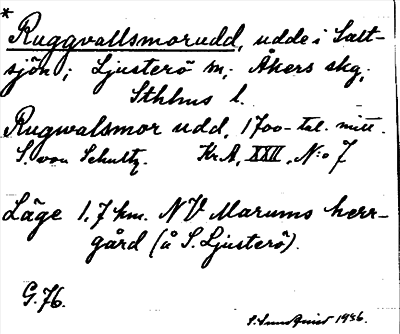 * Ruggvallsmorudd, udde i Salt-
sjön; Ljusterö sn; Åkers skg;
Sthlms l.
Rugwalsmor udd, 1700-tal. mitt.
S. von Schultz. Kr.A, XXII, N:o 7
Läge 1,7 km. NV Marums herr-
gård (å S. Ljusterö).
G.76.
S. Sundquist 1936.